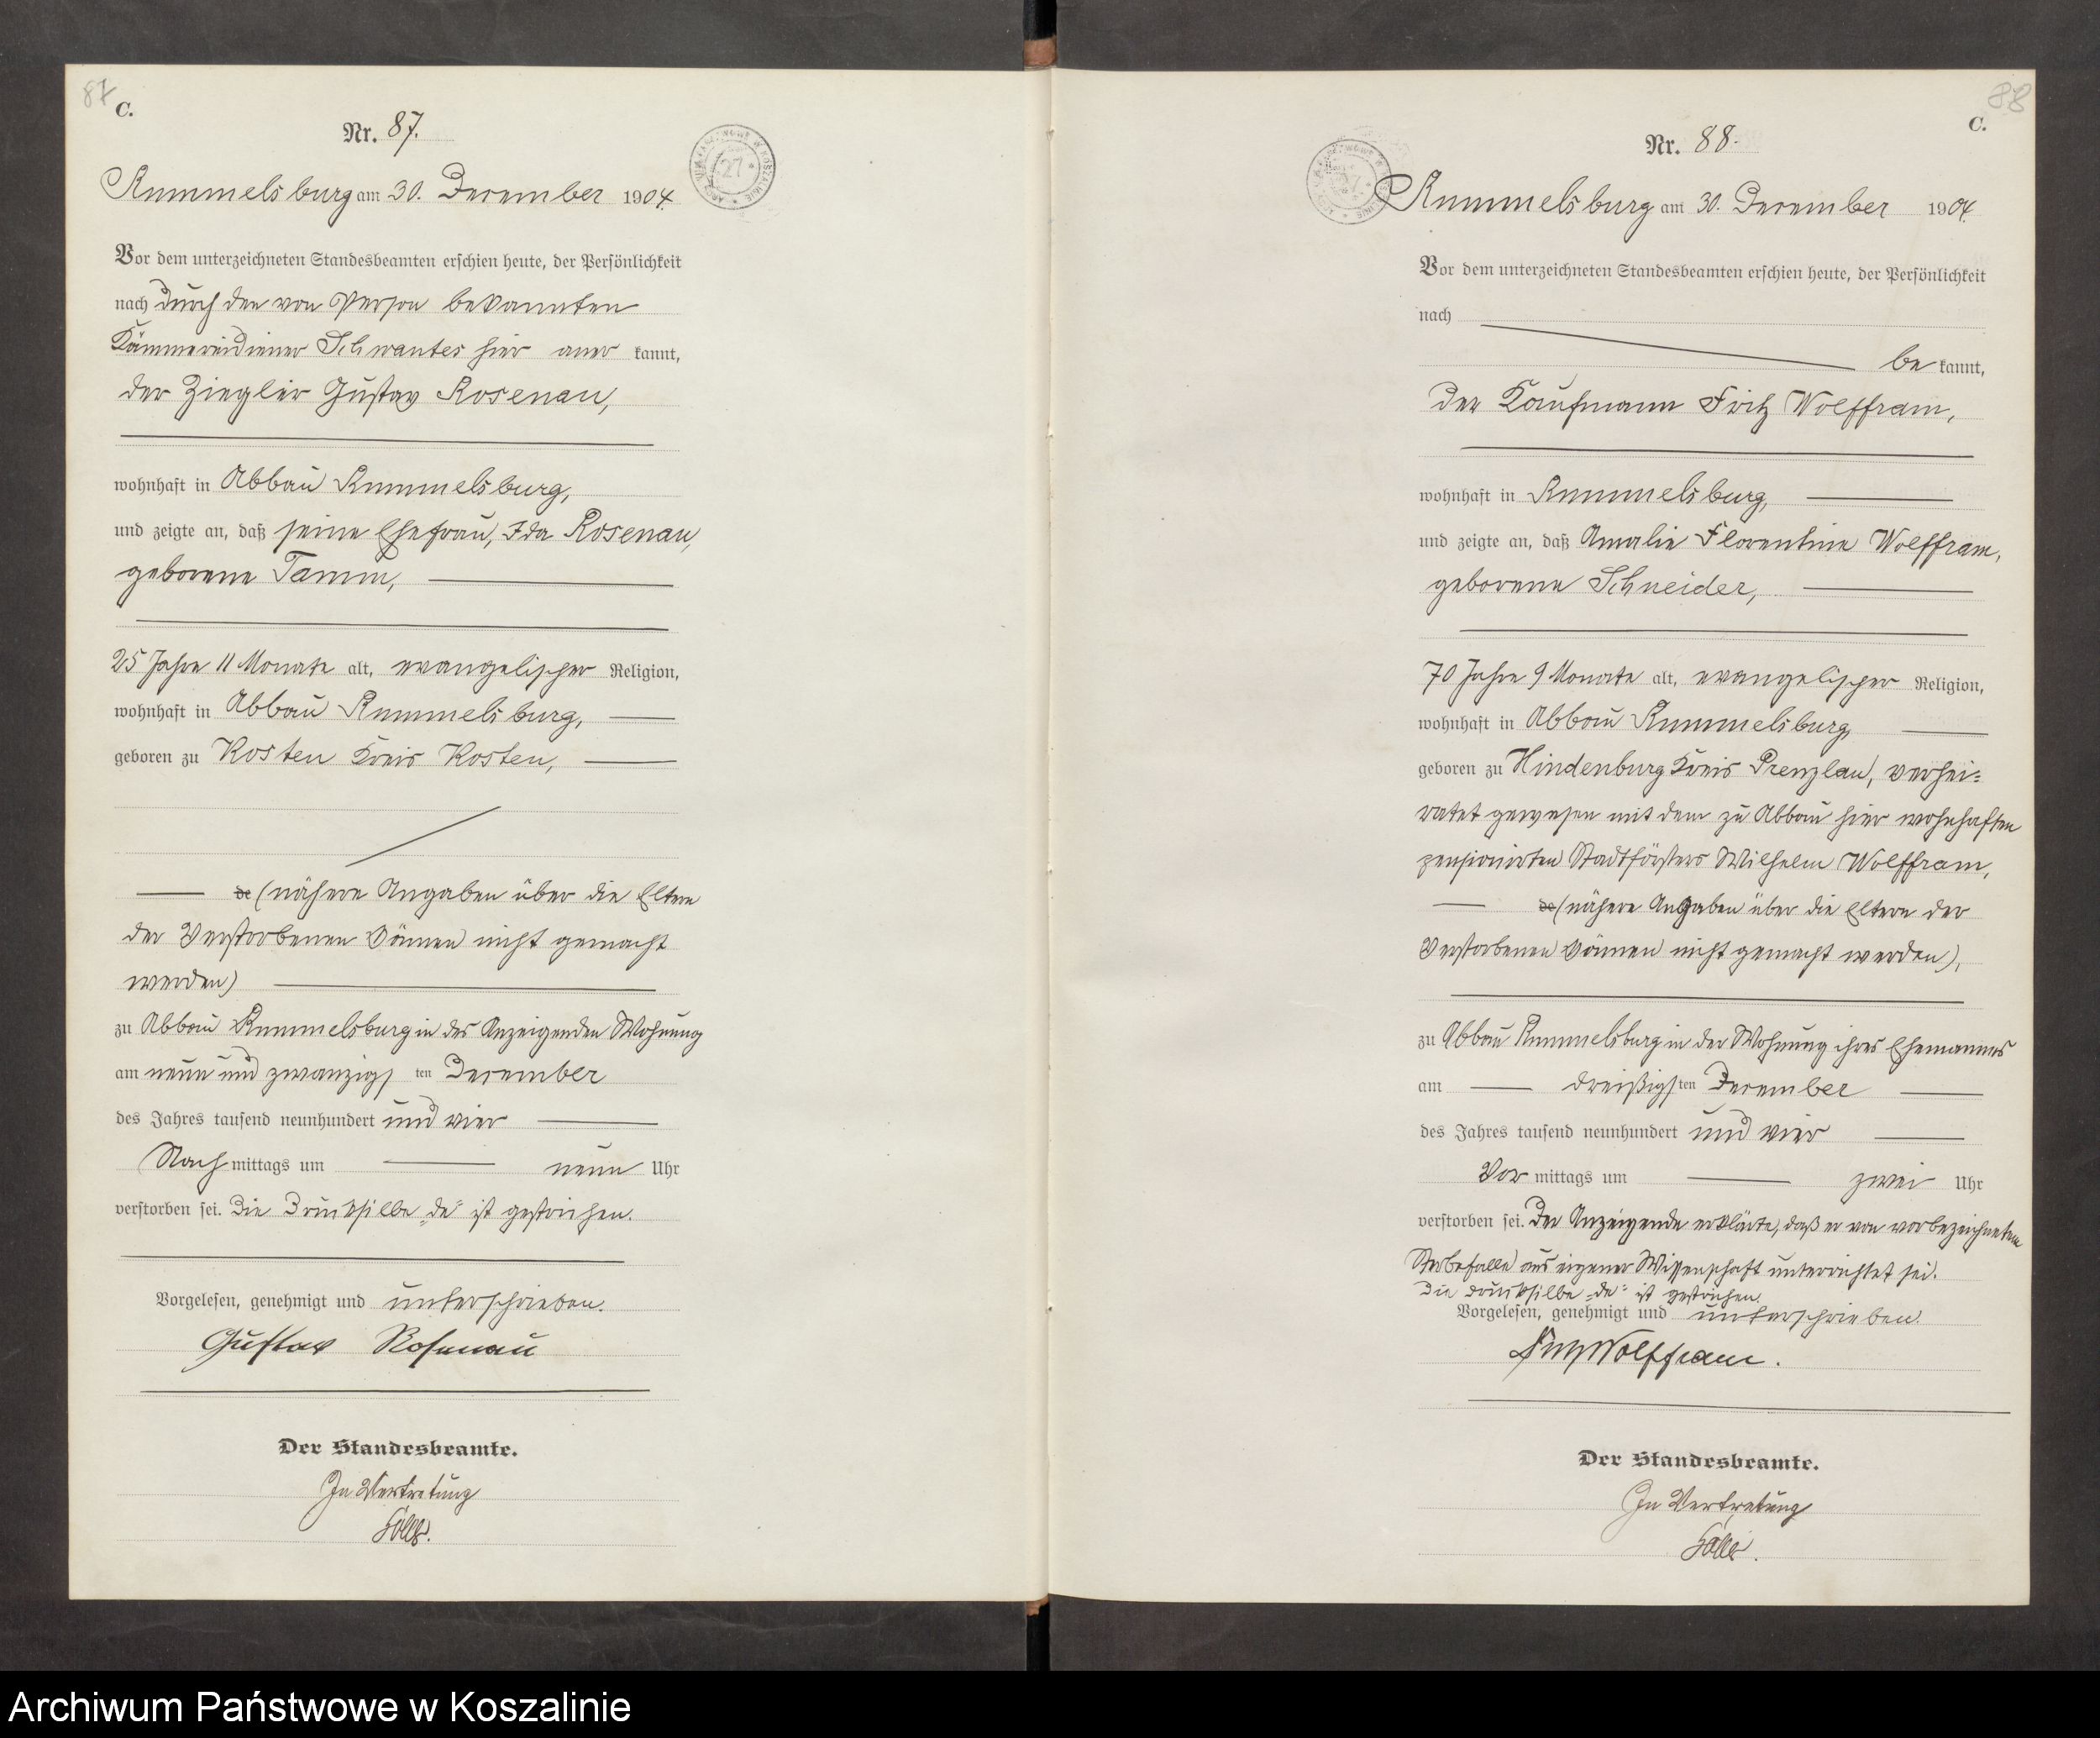 87
C.
Nr. 87.
Rummelsburg am 30. Dezember 1904.
Vor dem unterzeichneten Standesbeamten erschien heute, der Persönlichkeit
nach durch den von Person bekannten
Kämmereidiener Schwantes hier aner kannt,
der Ziegler Gustav Rosenau,
wohnhaft in Abbau Rummelsburg,
und zeigte an, daß seine Ehefrau, Ida Rosenau,
geborene Tamm,
25 Jahre 11 Monate alt, evangelischer Religion,
wohnhaft in Abbau Rummelsburg,
geboren zu Kosten Kreis Kosten,
de (nähere Angaben über die Eltern
der Verstorbenen können nicht gemacht
werden)
zu Abbau Rummelsburg in des Anzeigenden Wohnung
am neun und zwanzigs ten Dezember
des Jahres tausend neunhundert und vier
Nach mittags um neun Uhr
verstorben sei. Die Druksilbe „de" ist gestrichen.
Vorgelesen, genehmigt und unterschrieben.
Gustav Rosenau
Der Standesbeamte.
In Vertretung
88
C.
Nr. 88.
Rummelsburg am 30. Dezember 1904.
Vor dem unterzeichneten Standesbeamten erschien heute, der Persönlichkeit
nach
be kannt,
der Kaufmann Fritz Wolffram,
wohnhaft in Rummelsburg,
und zeigte an, daß Amalie Florentine Wolffram,
geborene Schneider,
70 Jahre 9 Monate alt, evangelischer Religion,
wohnhaft in Abbau Rummelsburg,
geboren zu Hindenburg Kreis Prenzlau, verhei-
ratet gewesen mit dem zu Abbau hier wohnhaften
pensionirten Stadtförsters Wilhelm Wolffram,
de (nähere Angaben über die Eltern der
Verstorbenen können nicht gemacht werden),
zu Abbau Rummelsburg in der Wohnung ihres Ehemannes
am dreißigs ten Dezember
des Jahres tausend neunhundert und vier
Vor mittags um zwei Uhr
verstorben sei. Der Anzeigende erklärte, daß er von vorbezeichnetem
Sterbefalle aus eigener Wissenschaft unterrichtet sei.
Die Druksilbe „de" ist gestrichen.
Vorgelesen, genehmigt und unterschrieben.
Fritz Wolffram.
Der Standesbeamte.
In Vertretung
Archiwum Państwowe w Koszalinie